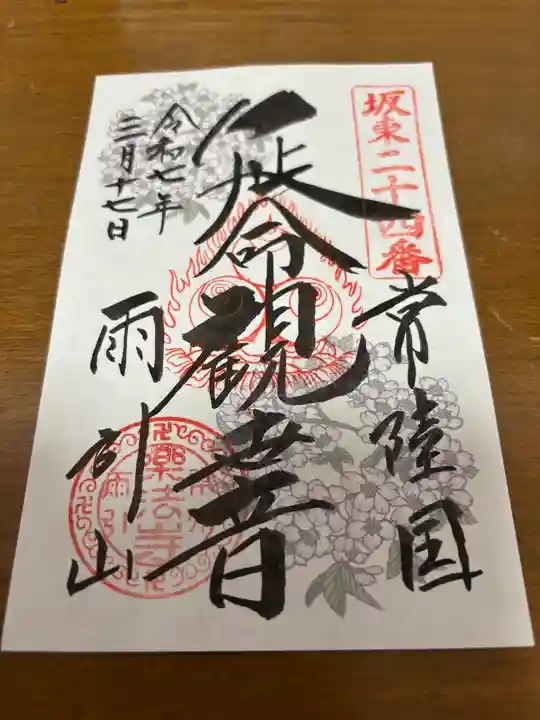 坂東二十四番
常陸国
延命観世音
令和七年
三月十七日
雨引山